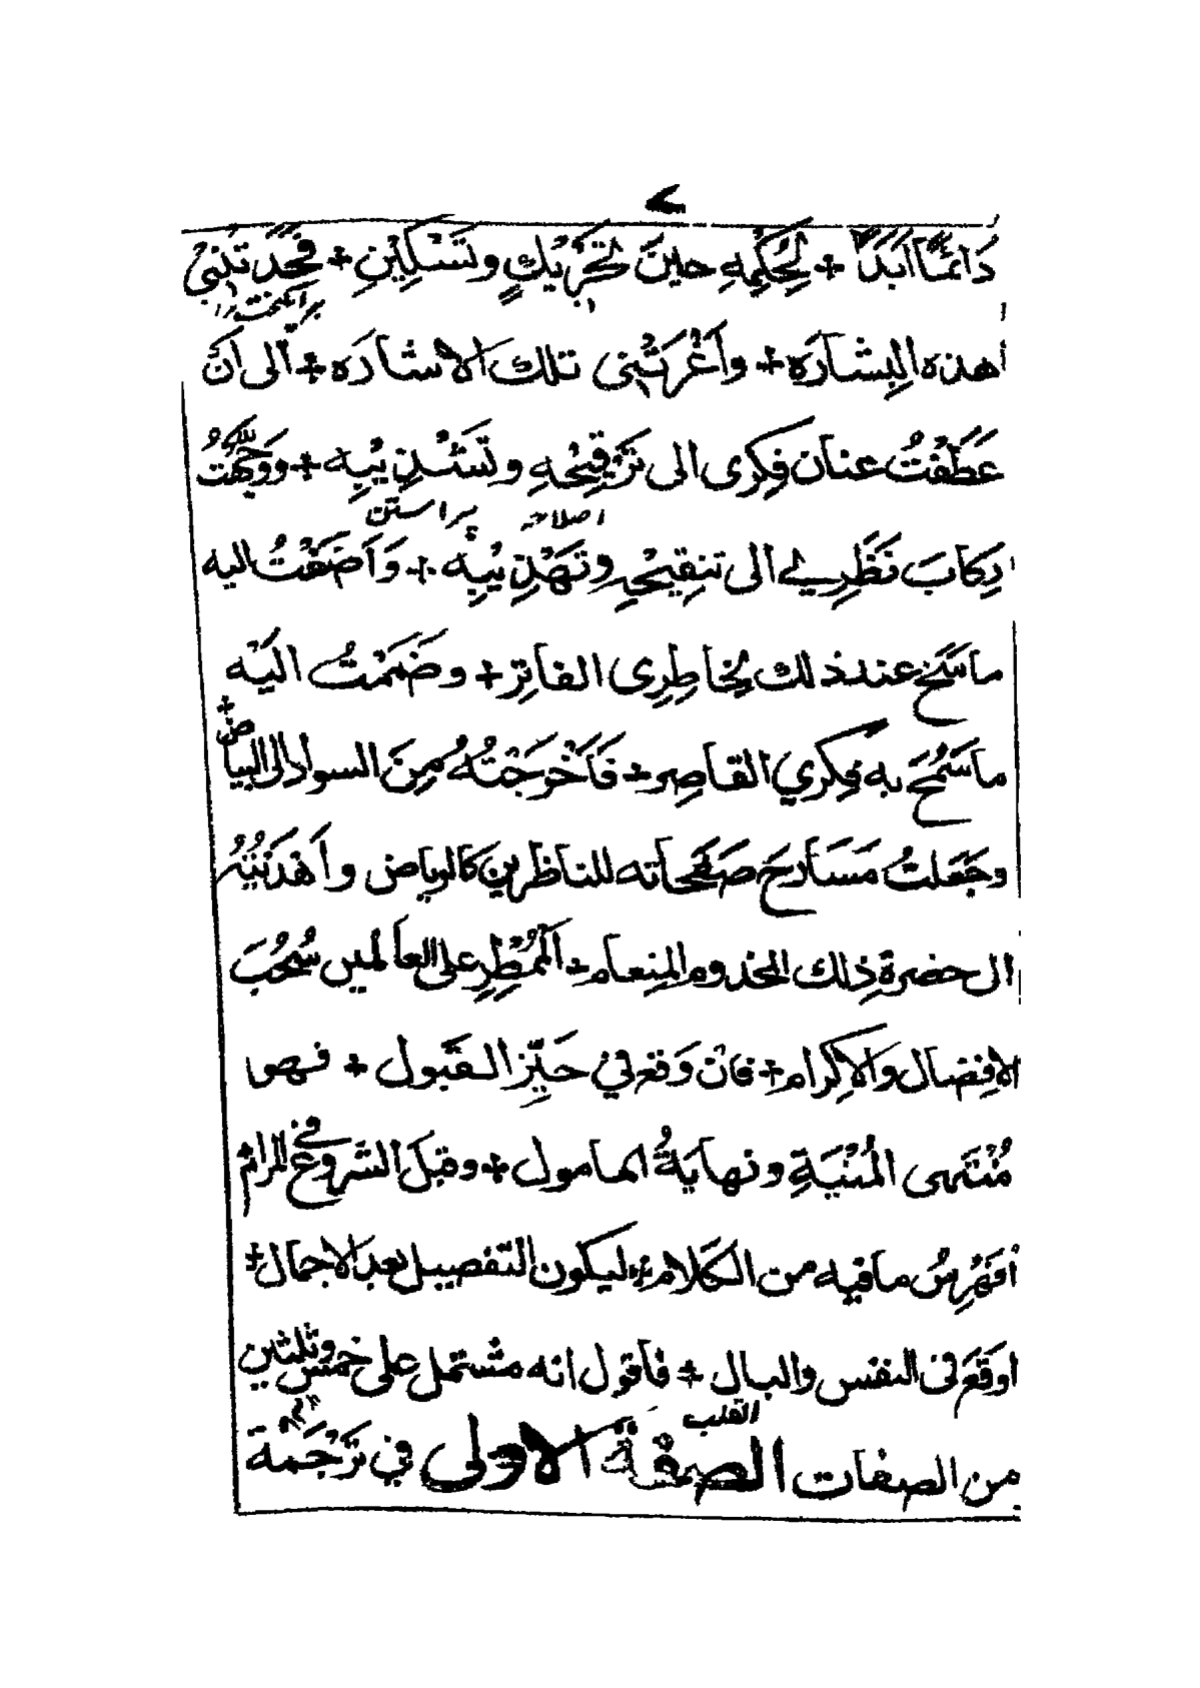 دَائمًا اَبَدًا + لِحُكمِهِ حينَ تَحْرِيْكٍ وتَسْكِيْنٍ + فَحَدَتْنِي
هذه البِشَارَةِ + وَاَغْرَتْنِى تلك الاشارَه + اِلى اَنْ
عَطَفْتُ عنان فِكرِى الى تَرْقِيْحِهِ وتَشْذِيْبِه + ووَجَّهْتُ
اصلاح پيراستن
رِكابَ نَظَرِي الى تنقِيْحِهِ وتَهْذِيْبِه + وَاَضَفْتُ اليه
ما سَنَحَ عند ذلك بِخاطِرِى الفاتِرِ + وضَمَمْتُ اليْه
ما سَمُحَ به فِكري القاصِرِ + فَاَخْرَجْتُهُ مِنَ السواد الى البياضِ +
وجَعَلتُ مَسَارِحَ صَفَحاته للناظرين كالرياض واَهْدَيْتُهُ
الى حضرة ذلك المخدوم المِنعام + اَلْمُمْطِرِ على العالَمين سُحُبَ
الافِضال والاكِرام + فان وَقع فى حَيِّز القَبول + فهو
مُنْتَهى المُنْيَةِ ونهايَةُ المامول + وقبلَ الشروع في المرام
اُفَهْرِسُ ما فيه من الكَلام + ليكون التفصيل بعد الاجمال +
اوقَعَ فى النفس والبال + فاَقول انه مشتمل على خمس وثلثين
القلب
من الصفات الصفة الاولى في تَرْجَمَة